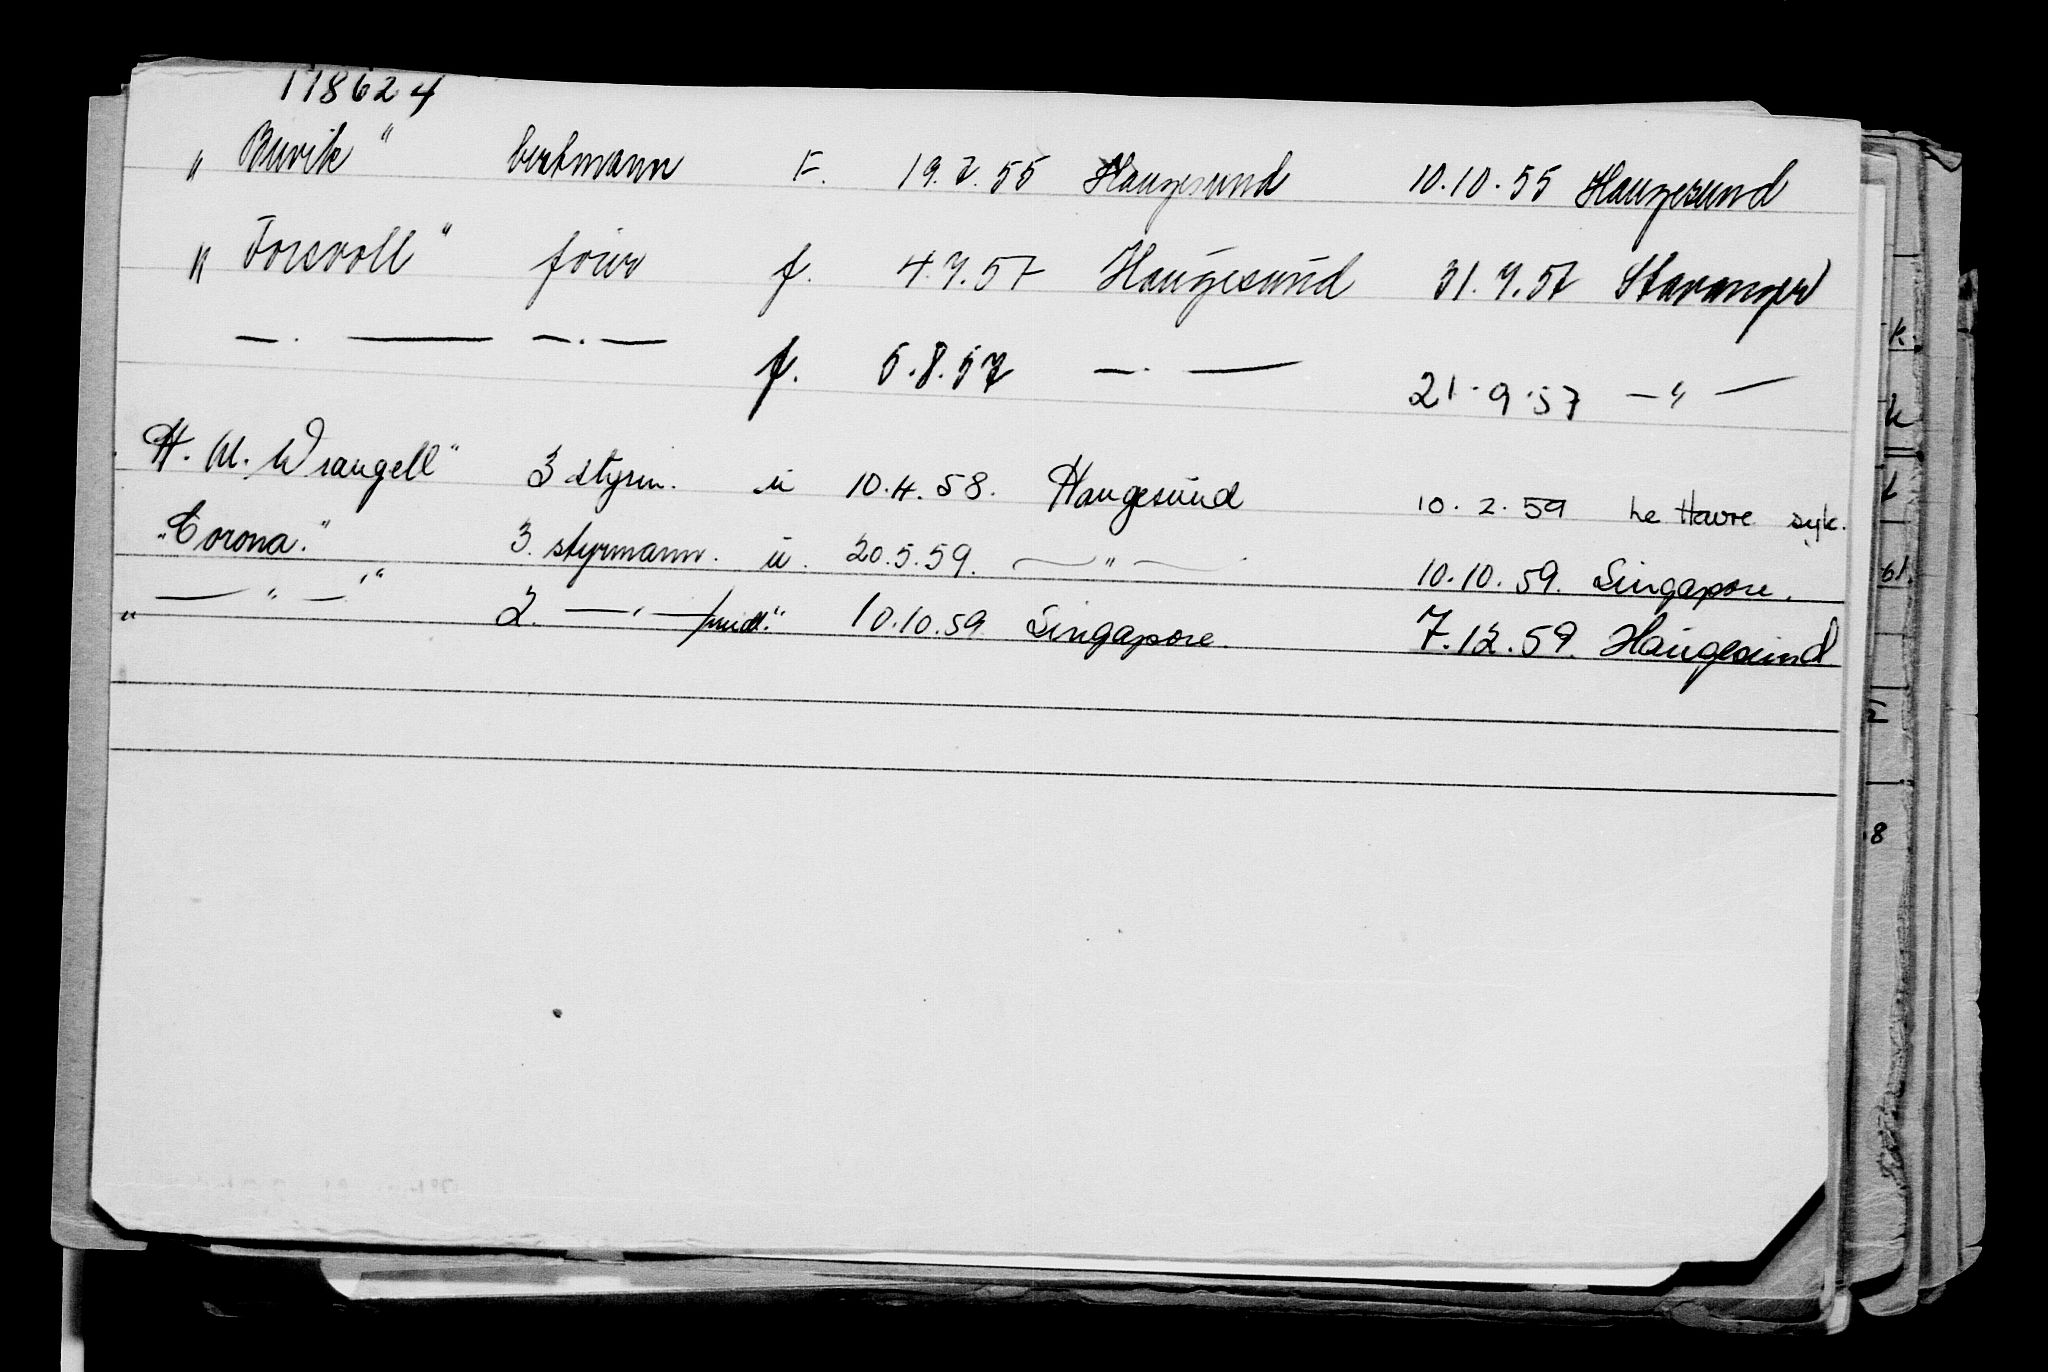 178624
„ Buvik “ F. 19.7.55 Haugesund 10.10.55 Haugesund
„ Torsvoll “ f. 4.7.57 Haugesund 31.7.57 Stavanger
—.— —.— f. 5.8.57 —.— 21.9.57 —"—
H. M. Wrangell“ 3 styrm. u 10.4.58. Haugesund 10.2.59 Le Havre syk.
„Corona.“ 3. styrmann. u. 20.5.59. —"— 10.10.59. Singapore.
„—"—.“ 2. —"— 10.10.59. Singapore. 7.12.59. Haugesund